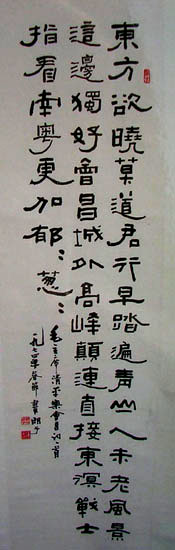 東方欲曉莫道君行早踏遍青山人未老風景
這邊獨好會昌城外高峰顛連直接東溟戰士
指看南粵更加郁〻葱〻
毛主席清平樂會昌詞
一九七四年春節書